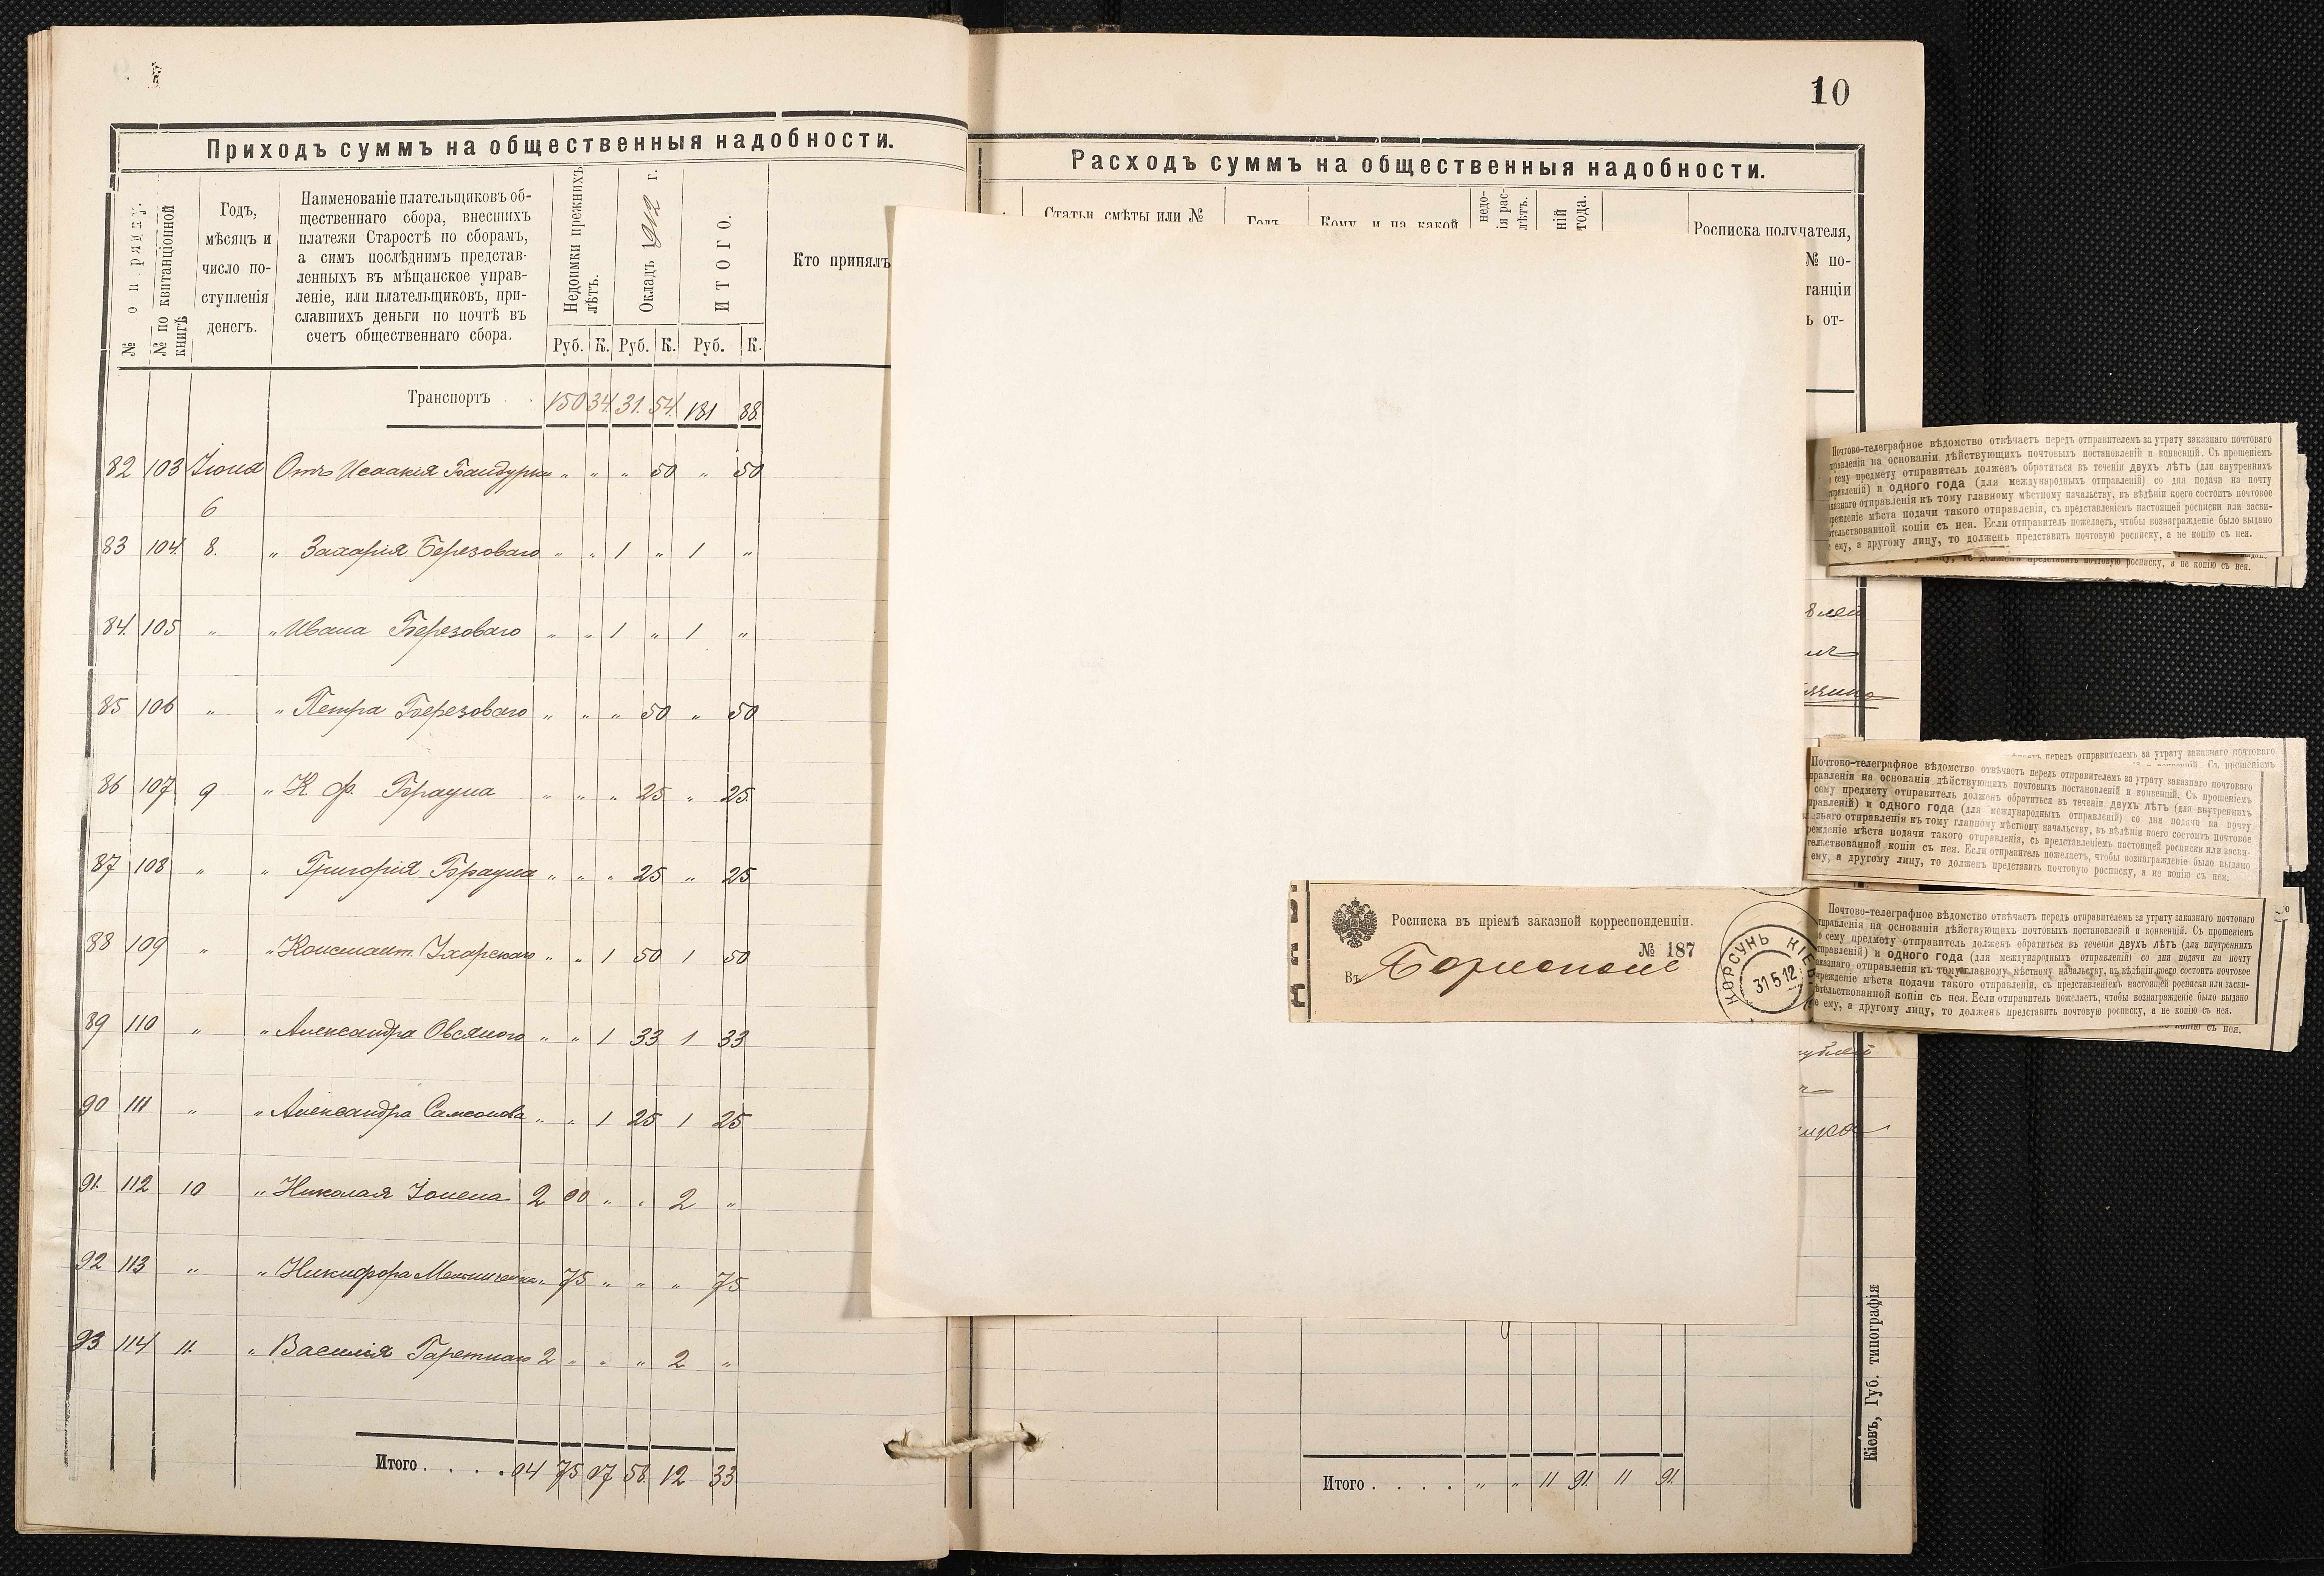 10
Приходъ суммъ на общественныя надобности.
№ по рядку.
№ по квитанціонной книгѣ
Годъ,
мѣсяцъ и
число по-
ступленія
денегъ.
Наименованіе плательщиковъ об-
щественнаго сбора, внесшихъ
платежи Старостѣ по сборамъ,
а симъ послѣднимъ представ-
ленныхъ въ мѣщанское управ-
леніе, или плательщиковъ, при-
славшихъ деньги по почтѣ въ
счетъ общественнаго сбора.
Недоимки прежнихъ лѣтъ.
Окладъ 1912 г.
ИТОГО.
Кто принялъ
Руб. К. Руб. К. Руб. К.
Транспортъ . . 150 34. 31. 54. 181 88.
82 103 Іюня Отъ Исаакія Бандурки „ „ „ 50 „ 50
6
83 104. 8. „ Захарія Березоваго „ „ 1 „ 1 „
84. 105 „ „ Ивана Березоваго „ „ 1 „ 1 „
85 106 „ „ Петра Березоваго „ „ „ 50 „ 50
86 107 9 „ К. Ф. Брауна „ „ „ 25 „ 25.
87 108 „ „ Григорія Брауна „ „ „ 25 „ 25
88 109 „ „ Констант. „ „ 1 50 1 50
89 110 „ „ Александра Овсяного „ „ 1 33 1 33
90 111 „ „ Александра Самсонова „ „ 1 25 1 25
91. 112 10 „ Николая 2 00 „ „ 2 „
92 113 „ „ Никифора „ 75 „ „ „ 75
93 114 11. „ Василія 2 „ „ „ 2 „
Итого . . . . 04 75 07 58. 12 33
Расходъ суммъ на общественныя надобности.
Статьи смѣты или №
Годъ
Кому и на какой
недо-
ія рас-
лѣтъ.
ній
года.
Росписка получателя,
№ по-
танціи
ъ от-
Почтово-телеграфное вѣдомство отвѣчаетъ передъ отправителемъ за утрату заказнаго почтоваго
правленія на основаніи дѣйствующихъ почтовыхъ постановленій и конвенцій. Съ прошеніемъ
о сему предмету отправитель долженъ обратиться въ теченіи двухъ лѣтъ (для внутреннихъ
правленій) и одного года (для международныхъ отправленій) со дня подачи на почту
казнаго отправленія къ тому главному мѣстному начальству, въ вѣдѣніи коего состоитъ почтовое
реждение мѣста подачи такого отправленія, съ представленіемъ настоящей росписки или засви-
тельствованной копіи съ нея. Если отправитель пожелаетъ, чтобы вознагражденіе было выдано
е ему, а другому лицу, то долженъ представить почтовую росписку, а не копію съ нея.
долженъ представить почтовую росписку, а не копію съ нея.
блей
передъ отправителемъ за утрату заказнаго почтоваго
Съ прошеніемъ
Почтово-телеграфное вѣдомство отвѣчаетъ передъ отправителемъ за утрату заказнаго почтоваго
правленія на основаніи дѣйствующихъ почтовыхъ постановленій и конвенцій. Съ прошеніемъ
сему предмету отправитель долженъ обратиться въ теченіи двухъ лѣтъ (для внутреннихъ
правленій) и одного года (для международныхъ отправленій) со дня подачи на почту
азнаго отправленія къ тому главному мѣстному начальству, въ вѣдѣніи коего состоитъ почтовое
режденіе мѣста подачи такого отправленія, съ представленіемъ настоящей росписки или засви-
тельствованной копіи съ нея. Если отправитель пожелаетъ, чтобы вознагражденіе было выдано
ему, а другому лицу, то долженъ представить почтовую росписку, а не копію съ нея.
Росписка въ пріемѣ заказной корреспонденціи.
№ 187
Въ Борисполе
КОРСУНЬ КІЕВ
31 5 12
Почтово-телеграфное вѣдомство отвѣчаетъ передъ отправителемъ за утрату заказнаго почтоваго
тправленія на основаніи дѣйствующихъ почтовыхъ постановленій и конвенцій. Съ прошеніемъ
о сему предмету отправитель долженъ обратиться въ теченіи двухъ лѣтъ (для внутреннихъ
тправленій) и одного года (для международныхъ отправленій) со дня подачи на почту
аказнаго отправленія къ тому главному мѣстному начальству, въ вѣдѣніи коего состоитъ почтовое
чрежденіе мѣста подачи такого отправленія, съ представленіемъ настоящей росписки или засви-
ѣтельствованной копіи съ нея. Если отправитель пожелаетъ, чтобы вознагражденіе было выдано
е ему, а другому лицу, то долженъ представить почтовую росписку, а не копію съ нея.
копію съ нея.
рублей
Итого . . . . „ „ 11 91. 11 91.
Кіевъ, Губ. типографія